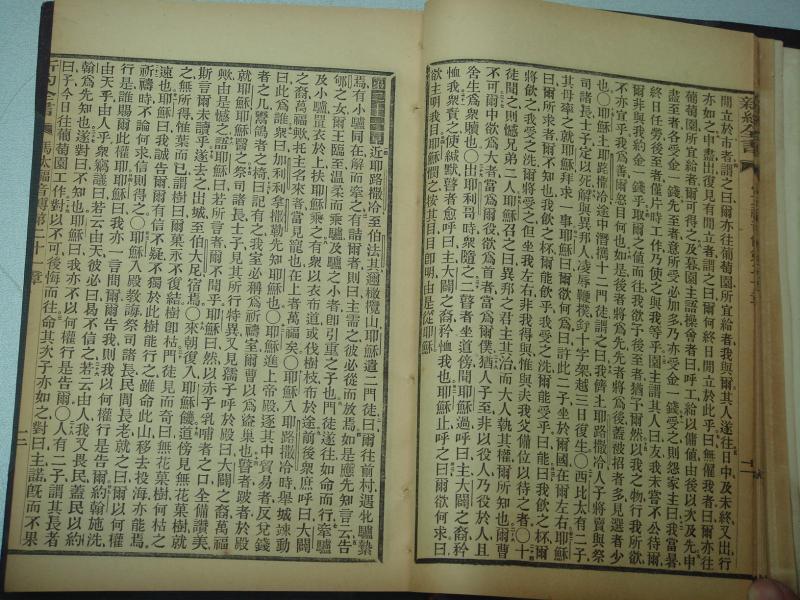 閒立於市者謂之曰爾亦往葡萄園所宜給者我與爾其人遂往日中及未終又出行
亦如之申盡出復見有閒立者謂之曰爾何終日閒立於此乎曰無僱我者曰爾亦往
葡萄園所宜給者爾可得之及暮園主語操會者曰呼工給以傭値由後以次及先申
盡至者各受金一錢先至者意所受必加多乃亦受金一錢受之則怨家主曰我當暑
終日任勞後至者僅片時工作乃使之與我等乎園主謂其人曰友我未嘗不公待爾
爾非與我約金一錢乎取爾之値而往我欲予後至者猶予爾然以我之物行我所欲
不亦宜乎我爲善爾怒目何也如是後者將爲先先者將爲後蓋被招者多見選者少
也〇耶穌上耶路撒冷途中潛攜十二門徒謂之曰我儕上耶路撒冷人子將賣與祭
司諸長士子定以死解與異邦人凌辱鞭撲釘十字架越三日復生〇西比太有二子
其母率之就耶穌拜求一事耶穌曰爾欲何爲曰許此二子坐於爾國左右耶穌
曰爾所求者爾不知也我飲之杯爾能飲乎我受之洗爾能受乎曰能曰我飲之杯爾
將飲之我受之洗爾將受之但坐我左右非我得與惟與夫我父備位以待之者〇十
徒聞之則憾兄弟二人耶穌召之曰異邦之君主其治而大人執其權爾所知也爾曹
不可爾中欲爲大者當爲爾役欲爲首者當爲爾僕猶人子至非以役人乃役於人且
舍生爲衆贖也〇出耶利哥時衆隨之二瞽者坐道傍聞耶穌過呼曰主大闢之裔矜
恤我衆責之使緘默瞽者愈呼曰主大闢之裔矜恤我也耶穌止呼之曰爾欲何求曰
欲主明我目耶穌憫之按其目目卽明由是從耶穌
近耶路撒冷至伯法其邇橄欖山耶穌遣二門徒曰爾往前村遇牝驢縶
焉有小驢同在解而牽之有詰爾者則曰主需之彼必從而放焉如是應先知言云告
郇之女爾王臨至溫柔而乘驢及驢之小者卽引重之子也門徒遂往如命而行牽驢
及小驢置衣於上扶耶穌乘之有衆以衣布道或伐樹枝布於途前後衆庶呼曰大闢
之裔萬福歟托主名來者當見寵也在上者萬福矣〇耶穌入耶路撒冷時舉城竦動
曰此爲誰衆曰加利利拿撒勒先知耶穌也〇耶穌進上帝殿逐其中貿易者反兌錢
者之几鬻鴿者之椅曰記有之我室必稱爲祈禱室爾曹以爲盜巢也瞽者跛者於殿
就耶穌耶穌醫之祭司諸長士子見其所行特異又見孺子呼於殿曰大闢之裔萬福
歟由是憾之語耶穌曰若所言者爾不聞乎耶穌曰然以赤子乳哺者之口全備讚美
斯言爾未讀乎遂去之出城至伯大尼宿焉〇來朝復入耶穌饑道傍見無花果樹就
之無所得惟葉而已謂樹曰爾菓永不復結樹卽枯門徒見而奇曰無花菓樹何枯之
速也耶穌曰我誠告爾爾有信不疑不獨於此樹能行之雖命此山移去投海亦能焉
祈禱時不論何求信則得之〇耶穌入殿教誨祭司諸長民間長老就之曰爾以何權
行是誰賜爾此權耶穌曰我亦一言問爾爾告我則我以何權行是告爾約翰施洗
由天乎由人乎衆竊議曰若云由天彼必曰易不信之若云由人我又畏民蓋民以約
翰爲先知也遂對曰不知曰我亦不以何權行是告爾〇人有二子謂其長者
曰子今日往葡萄園工作對以不可後悔而往命其次子亦如之對曰主諾旣而不果